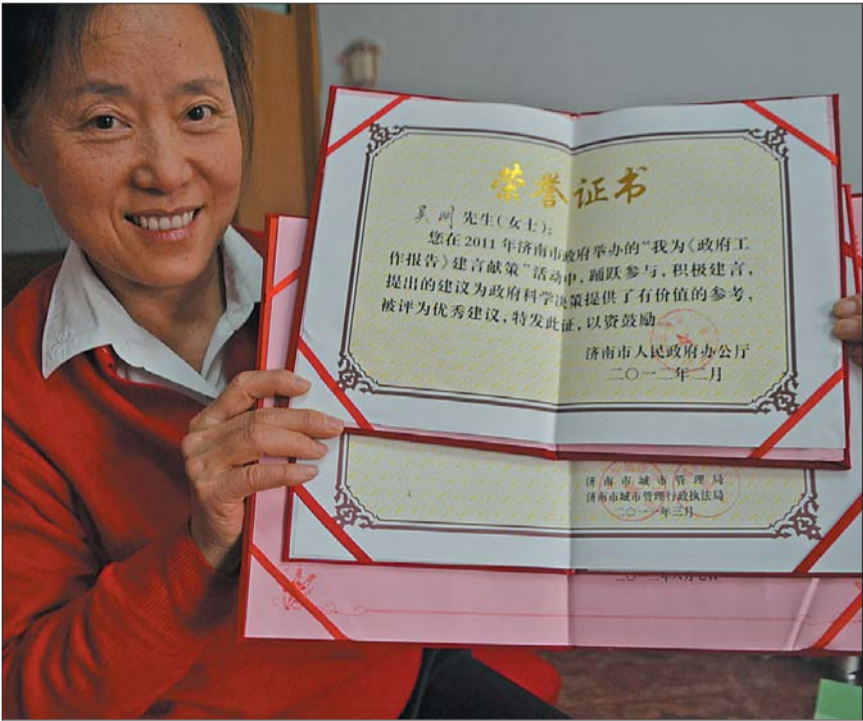 荣誉证书
吴明 先生(女士):
您在2011年济南市政府举办的“我为《政府工
作报告》建言献策”活动中，踊跃参与，积极建言，
提出的建议为政府科学决策提供了有价值的参考，
被评为优秀建议，特发此证，以资鼓励
济南市人民政府办公厅
二〇一二年二月
济南市城市管理局
济南市城市管理行政执法局
二〇一一年三月